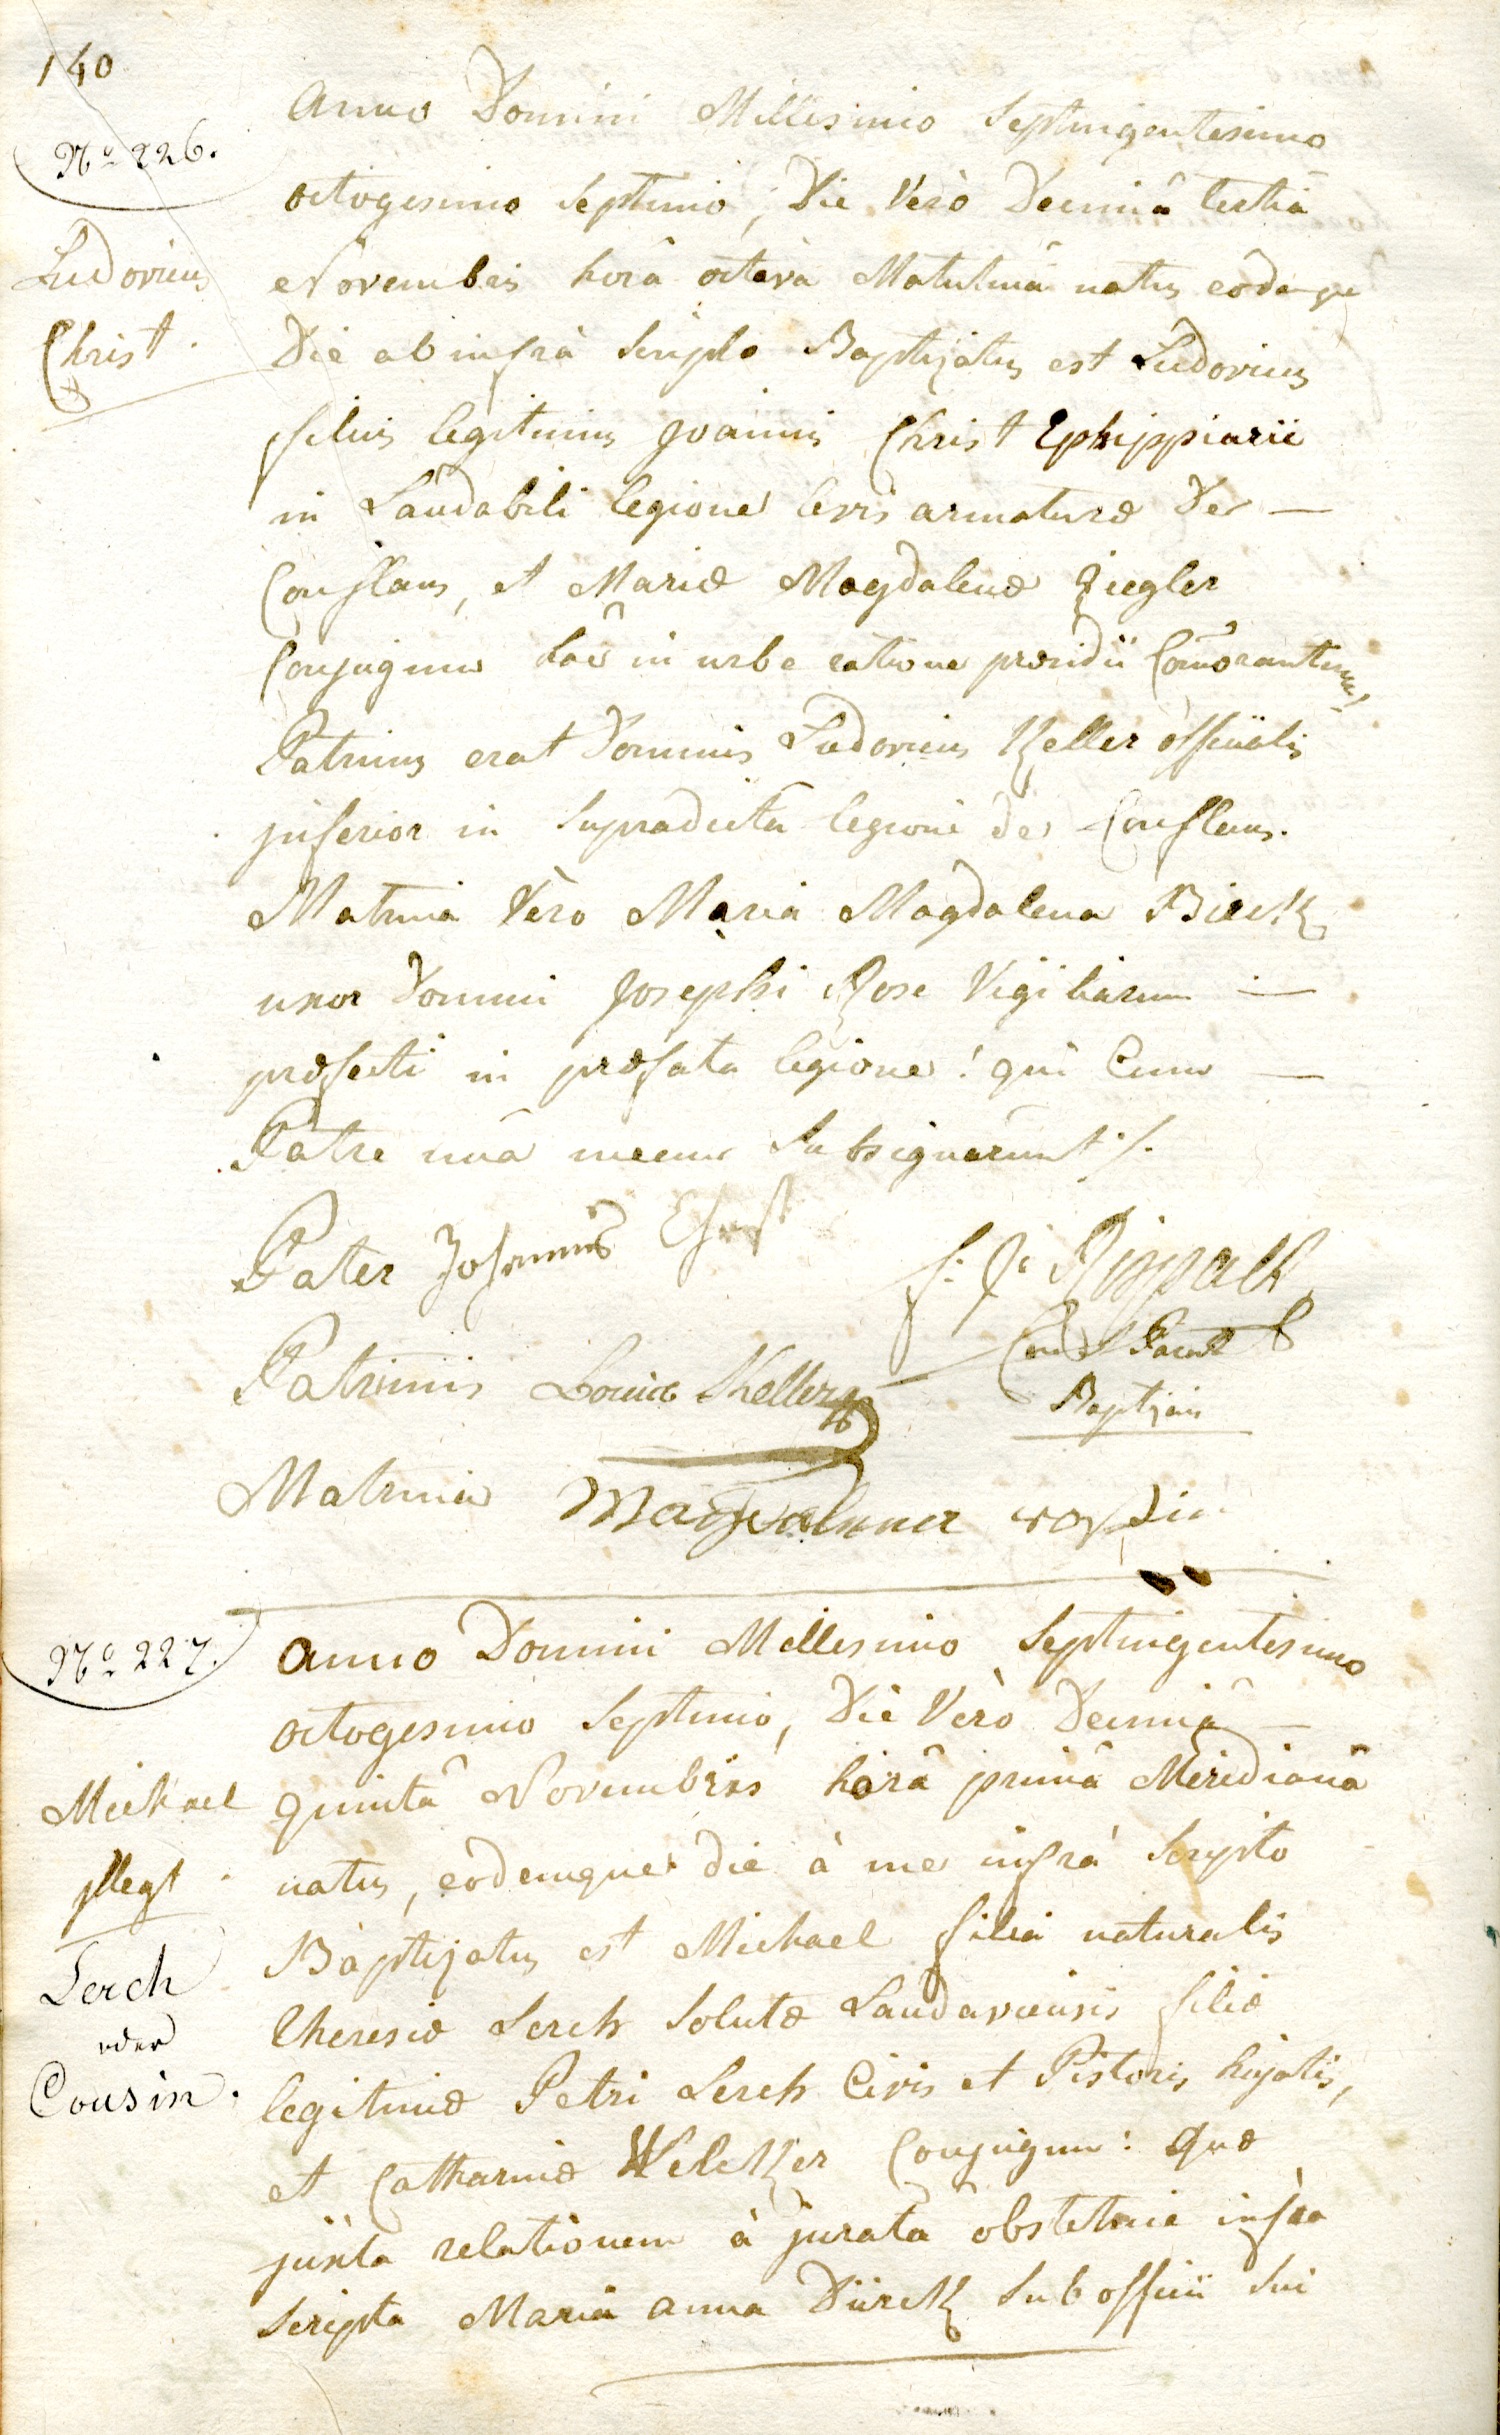 140
Nº 226.
Ludovicus
Christ.
Anno Domini Millesimo Septingentesimo
octogesimo septimo, Die Verò Decimâ tertiâ
Novembris horâ octavâ Matutinâ natus eôdemque
Die ab infrà scripto Baptizatus est Ludovicus
filius legitimus Joannis Christ Ephippiarii
in Laudabili legione levis armaturæ De —
Conflans, et Mariæ Magdalenæ Ziegler
Conjugum hâc in urbe ratione præsidii Com̃orantium,
Patrinus erat Dominus Ludovicus Keller officialis
inferior in supradictâ legione de Conflans.
Matrina Vèro Maria Magdalena Bieck
uxor Domini Josephi Rose Vigiliarum —
præfecti in præfata legione: qui Cum —
Patre unà mecum subsignarunt ./.
Pater Johannes Christ
Patrinus Louis Keller
Matrina Magdalena
Baptizans
Nº 227.
Michael
illegt
Lerch
oder
Cousin.
Anno Domini Millesimo Septingentesimo
octogesimo septimo, Die Vèro Decimâ —
quintâ Novembris horâ primâ Meridianâ
natus, eôdemque die à me infrà scripto
Baptizatus est Michael filius naturalis
Theresiæ Lerch solutæ Landaviensis filiæ
legitimæ Petri Lerch Civis et Pistoris hujatis,
et Catharinæ Welcker Conjugum: quæ
juxta relationem à jurata obstetrice infra
scripta Maria anna Dürck sub officii sui